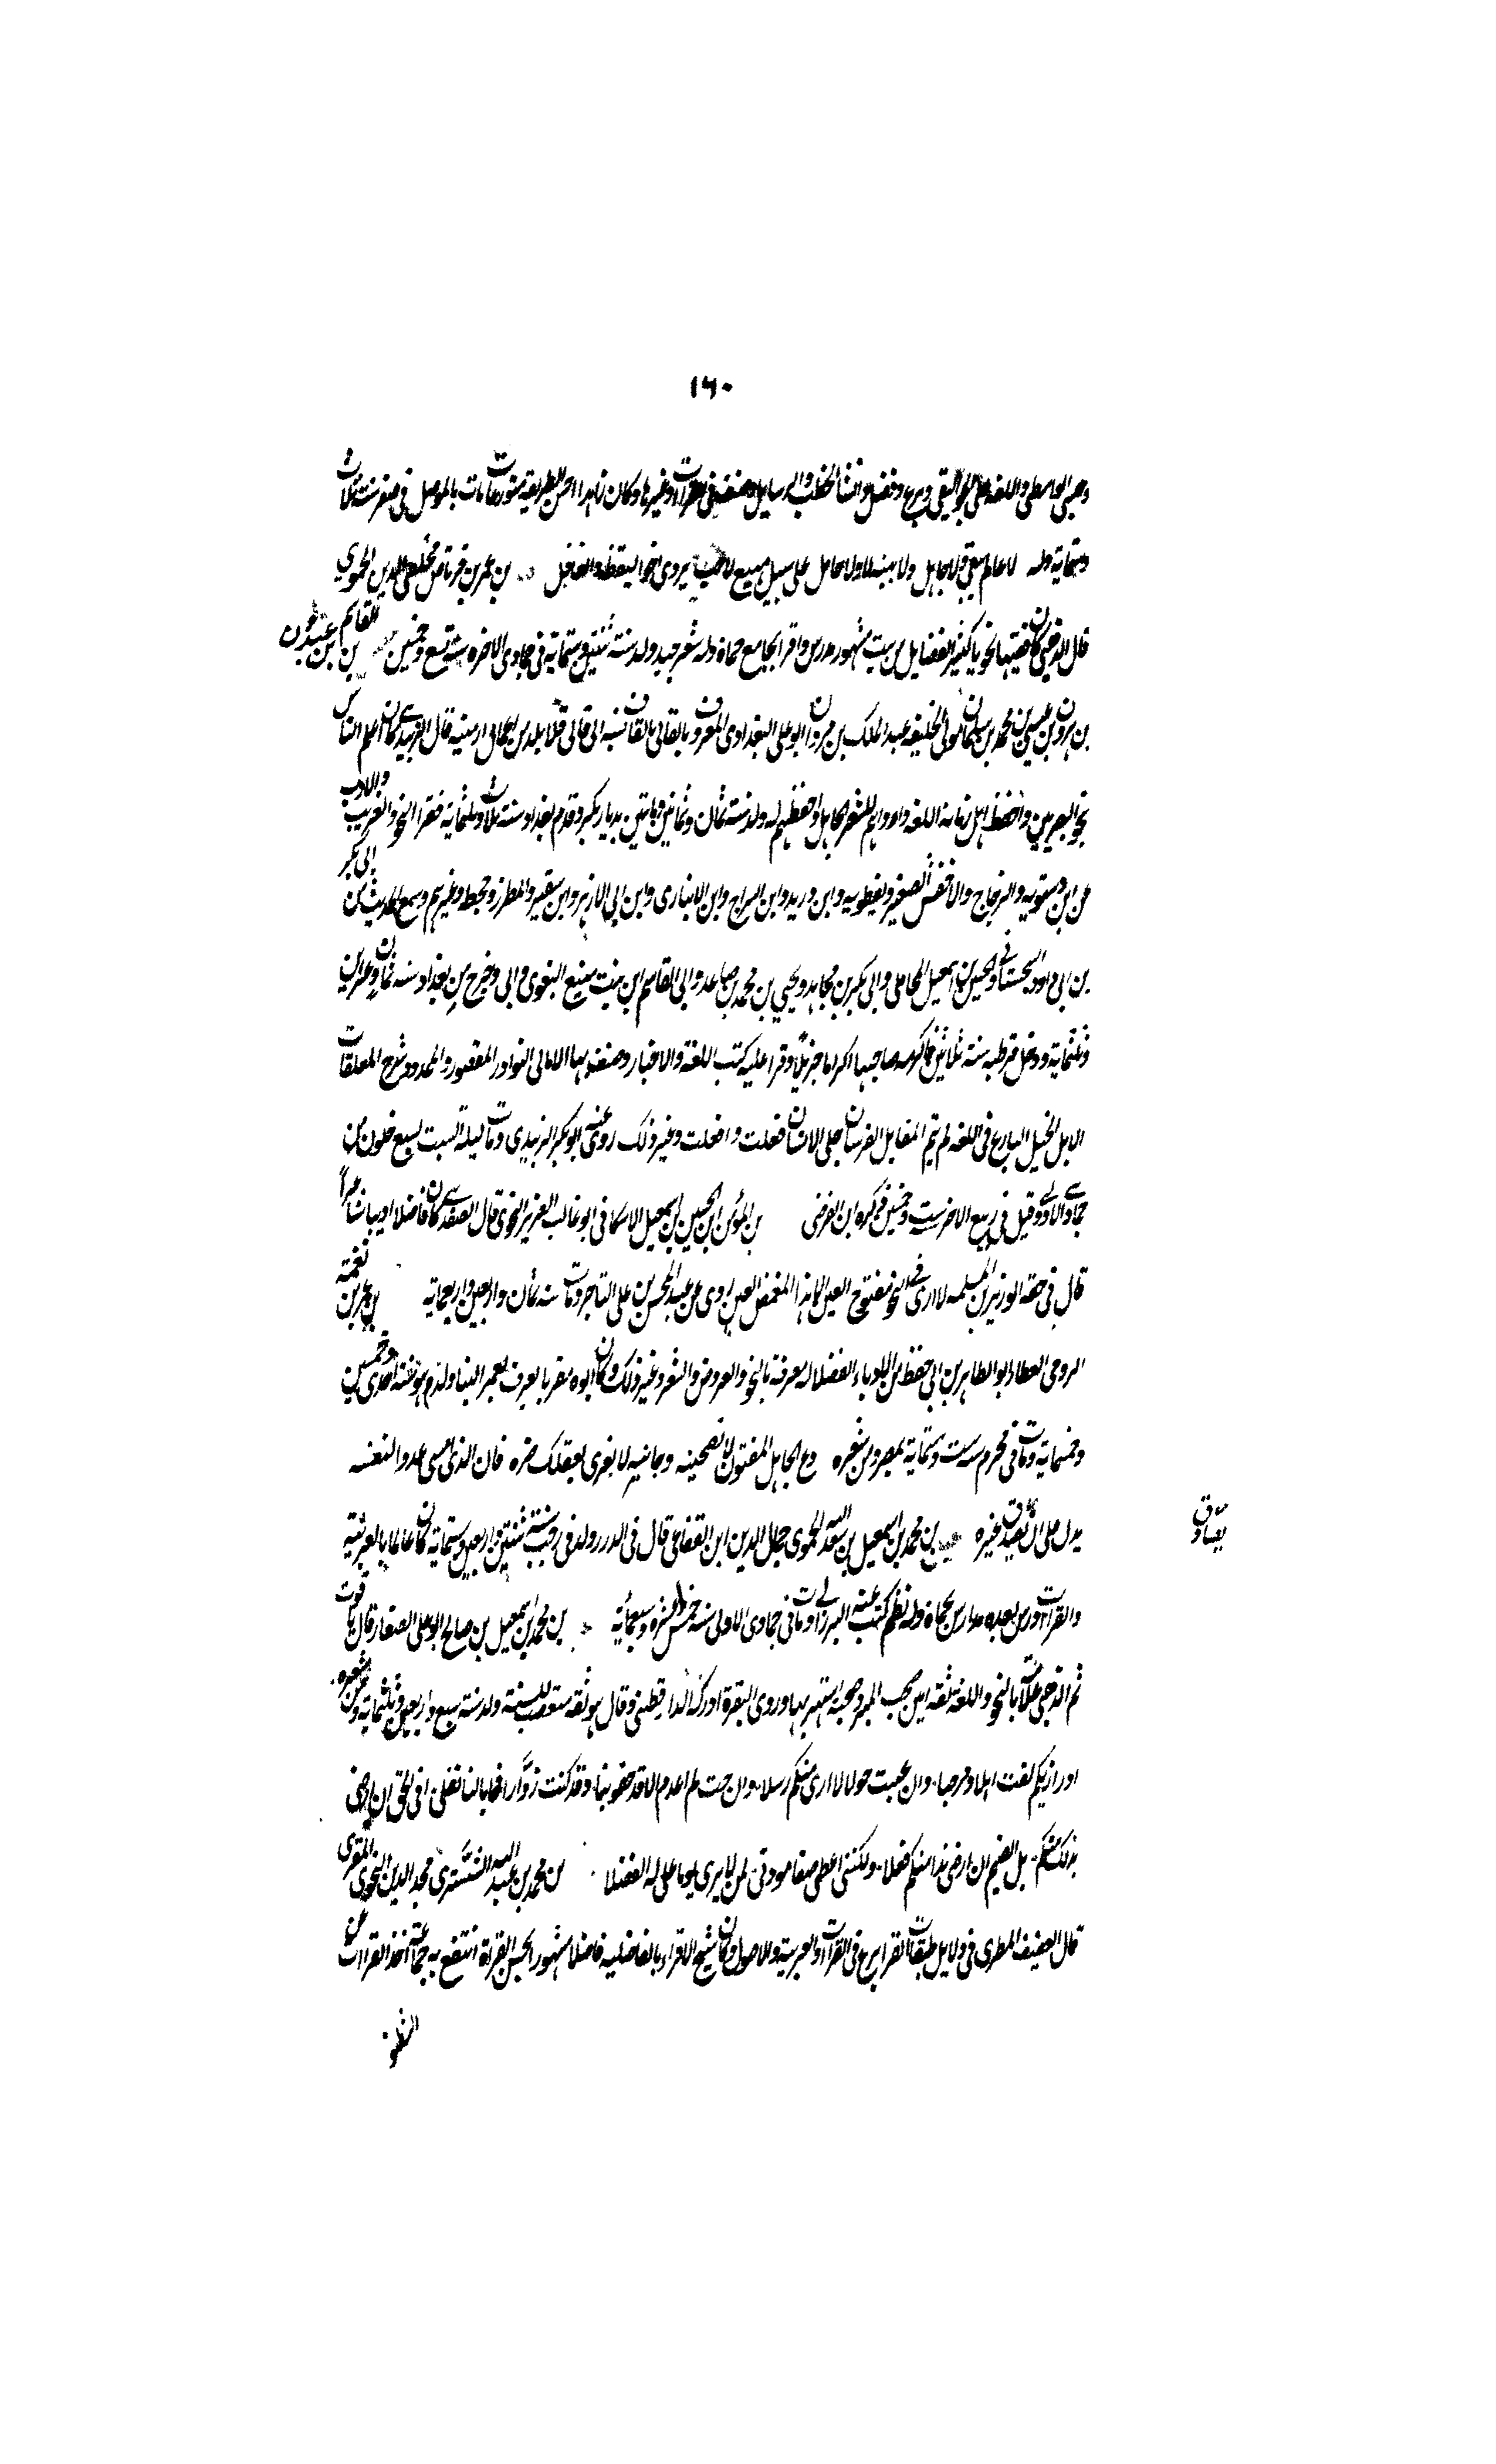 ١٦٠
وحبشي الواسطي واللغة على الجواليقي وبرع وفضل وانشأ الخطب والرسايل وصنف في القراآت وغيرها وكان زاهدا احسن الطريقة متورعا مات بالموصل في صفر سنة ثلاث
وستماية وله لا عالم يبقي ولا جاهل ولا نبيه لا ولا خامل على سبيل مهيع لاحب يردى اخو اليقظة والغافل بن عمر بن قرناص مخلص الدين الحموي
قال الذهبي كان فقيها نحويا كثير الفضايل من بيت مشهور درس واقرأ بجامع حماة وله شعر جيد ولد سنة ثنتين وستماية في جمادى الاخرة سنة تسع وخمسين بن القاسم بن عيذون
بن هرون بن عيسى بن محمد بن سليمان مولى الخليفة عبد الملك بن مروان ابو علي البغدادي المعروف بالقالي بالقاف نسبة الى قالي قلا بلد من اعمال ارمنية قال الزبيدي كان اعلم الناس
بنحو البصريين واحفظ اهل زمانه للغة وارواهم للشعر الجاهلي واحفظهم له ولد سنة ثمان وثمانين ومايتين بديار بكر وقدم بغداد سنة ثلاث وثلثماية فقرا النحو والعربية والادب
عن ابن درستويه والزجاج والاخفش الصغير ونفطويه وابن دريد وابن السراج وابن الانباري وابن ابي الازهر وابن شقير والمطرز وجحظة وغيرهم وسمع الحديث من ابي بكر
بن ابي داود السجستاني والحسين بن اسمعيل المحاملي وابي بكر بن مجاهد ويحيى بن محمد بن صاعد وابي القاسم ابن بنت منيع البغوي وابي وخرج من بغداد سنة ثمان وعشرين
وثلثماية ودخل قرطبة سنة ثلاثين فاكرمه صاحبها اكراما جزيلا وقرا عليه كتب اللغة والاخبار وصنف بها الامالي النوادر المقصور والممدود شرح المعلقات
الابل الخيل البارع في اللغة لم يتم المقاتل الفرسان حلى الانسان فعلت وافعلت وغير ذلك روى عنه ابو بكر الزبيدي ومات ليلة السبت لسبع خلون من
جمادى الاولى وقيل في ربيع الاخر ست وخمسين ذكره ابن الفرضي بن المؤمن ابن الحسين بن اسمعيل الاسكافي ابو غالب الضرير النحوي قال الصفدي كان فاضلا اديبا شاعرا
قال في حقه الوزير بن المسلمة لا ارى في النحو مفتوح العين الا هذا المغمض العين روى عن عبد المحسن بن علي التاجر ومات سنة ثمان واربعين واربعماية بن عمر بن نعمة
الرومي العطار ابو الطاهر بن ابي حفظ من الادباء الفضلا له معرفة بالنحو والعروض والشعر وغير ذلك وكان ابوه مقريا يعرف بعمر البنا ولد بمصر سنة احدى وخمسين
وخمسماية ومات في محرم سنة ست وستماية بمصر ومن شعره دع الجاهل المفتون لا تصحبنه وجانبه لا يغرى بعقلك ضره فان الذي امسى عدوا لنفسه
يدل على ان لا يصادق غيره بن محمد بن اسمعيل بن سعد الله الحموي جمال الدين ابن القفاعي قال في الدرر ولد في رجب سنة ثنتين واربعين وستماية كان عالما بالعربية
يصادق
والقراآت ودرس بعده مدارس بحماة وله نظم كتب عنه البرزالي ومات في جمادى الاولى سنة خمس عشرة وسبعماية بن محمد بن اسمعيل بن صالح ابو علي الصفار قال ياقوت
ثم الذهبي علامة بالنحو واللغة ثقة امين صحب المبرد صحبة اشتهر بها وروى ادركه الدارقطني وقال هو ثقة متعصب للسنة ولد سنة سبع واربعين وثلثماية ومن شعره
اذا زرتكم لقيت اهلا ومرحبا وان غبت حولا لا ارى منكم رسلا وان جيت لم اعدم الا قد جفوتنا وقد كنت زوارا فما بالنا نقلى افي الحق ان ارضى
بذلك منكم بل الضيم ان ارضى بذا منكم فعلا ولكنني اعطي صفا مودتي لمن لا يرى يوما علي له الفضلا بن محمد بن عبد الله التستري مجد الدين النحوي المقري
قال العفيف المطري في ذيل طبقات القرا برع في القراآت والعربية والاصول وكان شيخ الاقراء بالفاضلية فاضلا مشهورا بحسن القراة انتفع به جماعة اخذ القراات عن
الشطنو